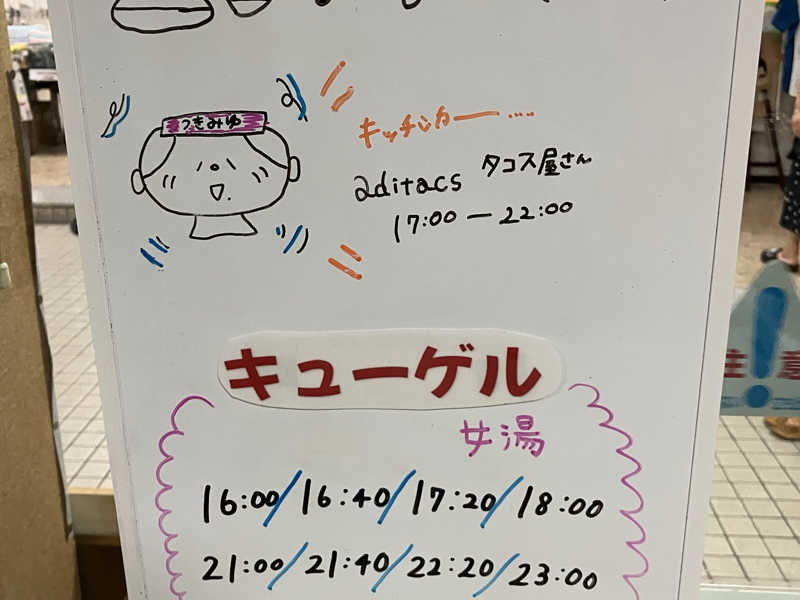 つきみゆ
キッチンカー……
2ditacs タコス屋さん
17:00 ― 22:00
キューゲル
女湯
16:00/16:40/17:20/18:00
21:00/21:40/22:20/23:00
注意